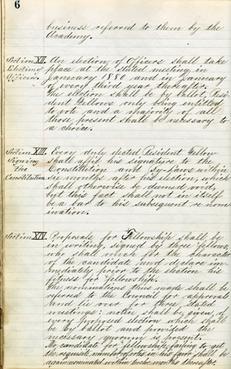 6
business referred to them by the
Academy.
Section XII. An election of Officers shall take
Election place at the stated meeting in
Officers. January 1880 and in January
of every third year thereafter.
The election shall be by ballot, Resi-
dent Fellows only being entitled
to vote and a majority of all
those present shall be necessary to
a choice.
Section XIII. Every duly elected Resident Fellow
Signing shall affix his signature to the
the Constitution and By-Laws within
Constitution. six months after his election, which
shall otherwise be deemed void,
but this fact shall not in itself
be a bar to his subsequent nom-
ination.
Section XIV. Proposals for Fellowship shall be
in writing, signed by three fellows,
who shall vouch for the character
of the candidate and declare im-
mediately prior to the election his
fitness for fellowship.
The nominations thus made shall be
referred to the Council for approval
and lie over for three stated
meetings; notice shall be given of
every proposed election which shall
be by ballot and provided the
necessary quorum is present.
No candidate for fellowship failing to get
the required number of votes in his favor shall be
again nominated within twelve months thereafter.